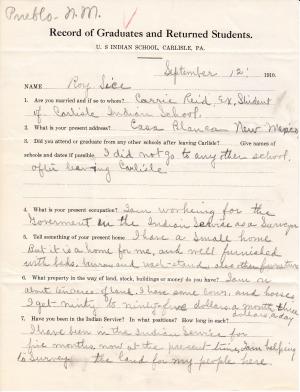 Pueblo N.M.
Record of Graduates and Returned Students.
U. S INDIAN SCHOOL, CARLISLE, PA.
September 12 1910.
NAME Roy Sice
1. Are you married and if so to whom? Carrie Reid, Ex. Student
of Carlisle Indian School.
2. What is your present address? Casa Blanca New Mexico
3. Did you attend or graduate from any other schools after leaving Carlisle? Give names of
schools and dates if possible. I did not go to any other school
after leaving Carlisle
4. What is your present occupation? I am working for the
Goverment in the Indian Service as a Surveyor
5. Tell something of your present home. I have a small home
But it is a home for me, and well furnished
with beds, and wash-stand, also other furniture
6. What property in the way of land, stock, buildings or money do you have? I am on
about acres of land. I have some cows and horses
I get ninty to ninty-five dollars a month three
dollars a day
7. Have you been in the Indian Service? In what positions? How long in each?
I have been in the Indian Service for
five months now at the present time, I am helping
to Survey the land for my people here.